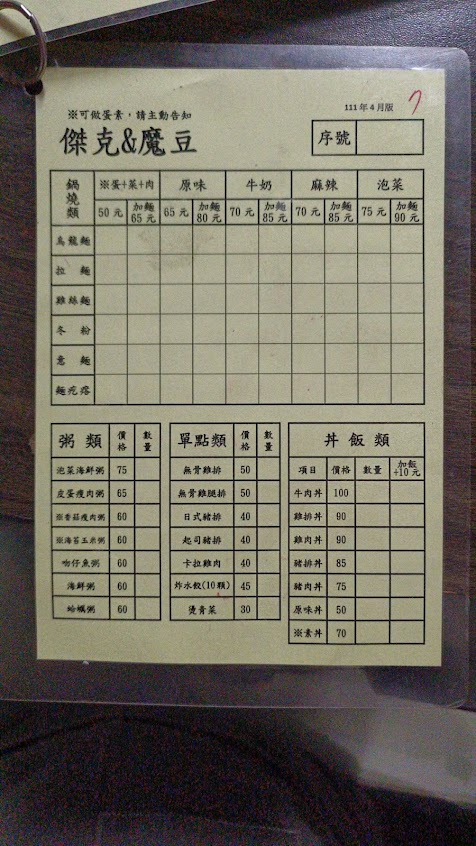 ※可做蛋素，請主動告知
111年4月版
7
傑克&魔豆
序號
鍋燒類 ※蛋+菜+肉 原味 牛奶 麻辣 泡菜
50元 加麵65元 65元 加麵80元 70元 加麵85元 70元 加麵85元 75元 加麵90元
烏龍麵
拉麵
雞絲麵
冬粉
意麵
麵疙瘩
粥類 價格 數量
泡菜海鮮粥 75
皮蛋瘦肉粥 65
※香菇瘦肉粥 60
※海苔玉米粥 60
吻仔魚粥 60
海鮮粥 60
蛤蠣粥 60
單點類 價格 數量
無骨雞排 50
無骨雞腿排 50
日式豬排 40
起司豬排 40
卡拉雞肉 40
炸水餃(10顆) 45
燙青菜 30
丼飯類
項目 價格 數量 加飯+10元
牛肉丼 100
雞排丼 90
雞肉丼 90
豬排丼 85
豬肉丼 75
原味丼 50
※素丼 70